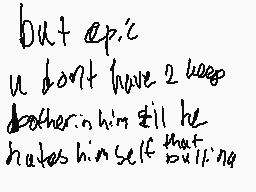 but epic
u dont have 2 keep
botherin him till he
hates him self that
bulling